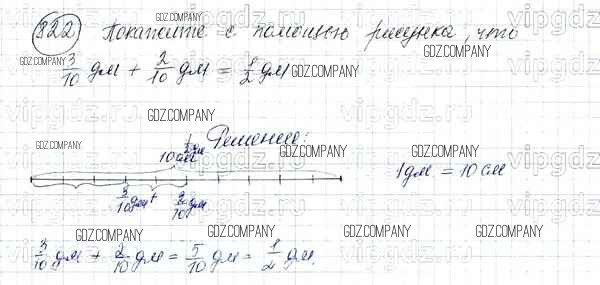 822 Покажите с помощью рисунка, что
3/10 дм + 2/10 дм = 1/2 дм
Решение:
1/2 дм
10 см
1 дм = 10 см
3/10 дм + 2/10 дм
3/10 дм + 2/10 дм = 5/10 дм = 1/2 дм.
GDZ.COMPANY
GDZ.COMPANY
GDZ.COMPANY
GDZ.COMPANY
GDZ.COMPANY
GDZ.COMPANY
GDZ.COMPANY
GDZ.COMPANY
GDZ.COMPANY
GDZ.COMPANY
GDZ.COMPANY
GDZ.COMPANY
GDZ.COMPANY
vipgdz.ru
vipgdz.ru
vipgdz.ru